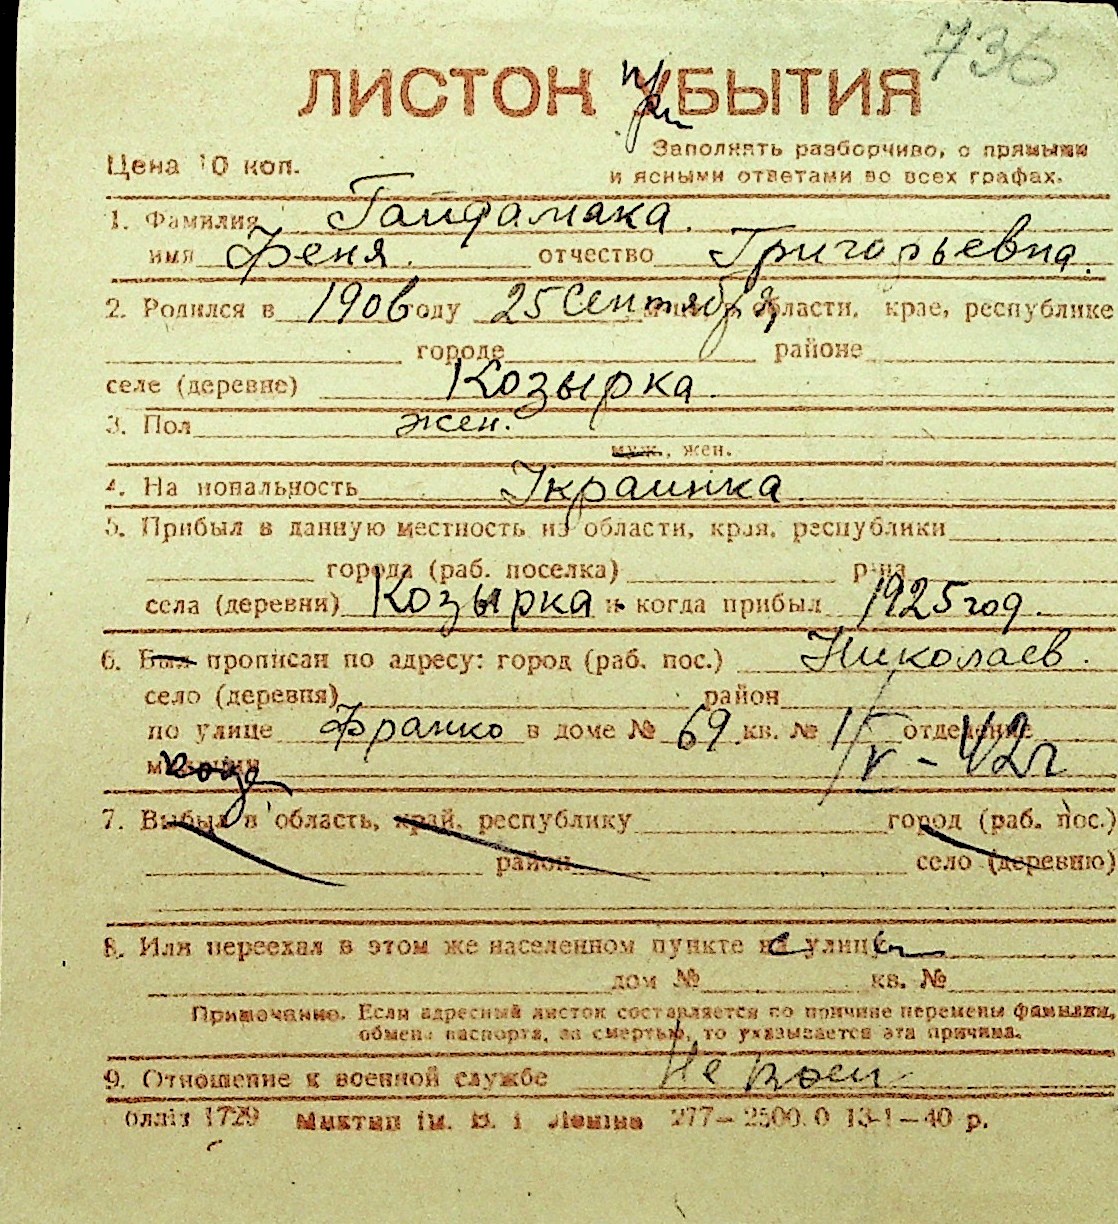 736
ЛИСТОК УБЫТИЯ
Цена 10 коп.
Заполнять разборчиво, с прямыми
и ясными ответами во всех графах.
1. Фамилия Гайдамака.
имя Феня. отчество Григорьевна.
2. Родился в 1906 году 25 Сентября области, крае, республике
городе районе
селе (деревне) Козырка.
3. Пол жен.
муж., жен.
4. Национальность Украинка.
5. Прибыл в данную местность из области, края, республики
города (раб. поселка) р-на
села (деревни) Козырка и когда прибыл 1925 год.
6. Был прописан по адресу: город (раб. пос.) Николаев.
село (деревня) район
по улице Франко в доме № 69 кв. № 1 отделение
милиции V - 42 г
7. Выбыл в область, край, республику город (раб. пос.)
район село (деревню)
8. Или переехал в этом же населенном пункте с улицы
дом № кв. №
Примечание. Если адресный листок составляется по причине перемены фамилии,
обмена паспорта, за смертью, то указывается эта причина.
9. Отношение к военной службе Не воен
1729 277—2500.0 13-1—40 р.